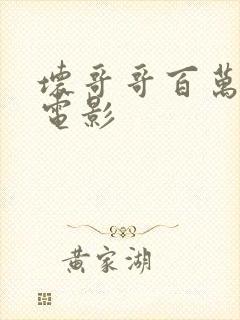 壞哥哥百萬
電影
黃家湖